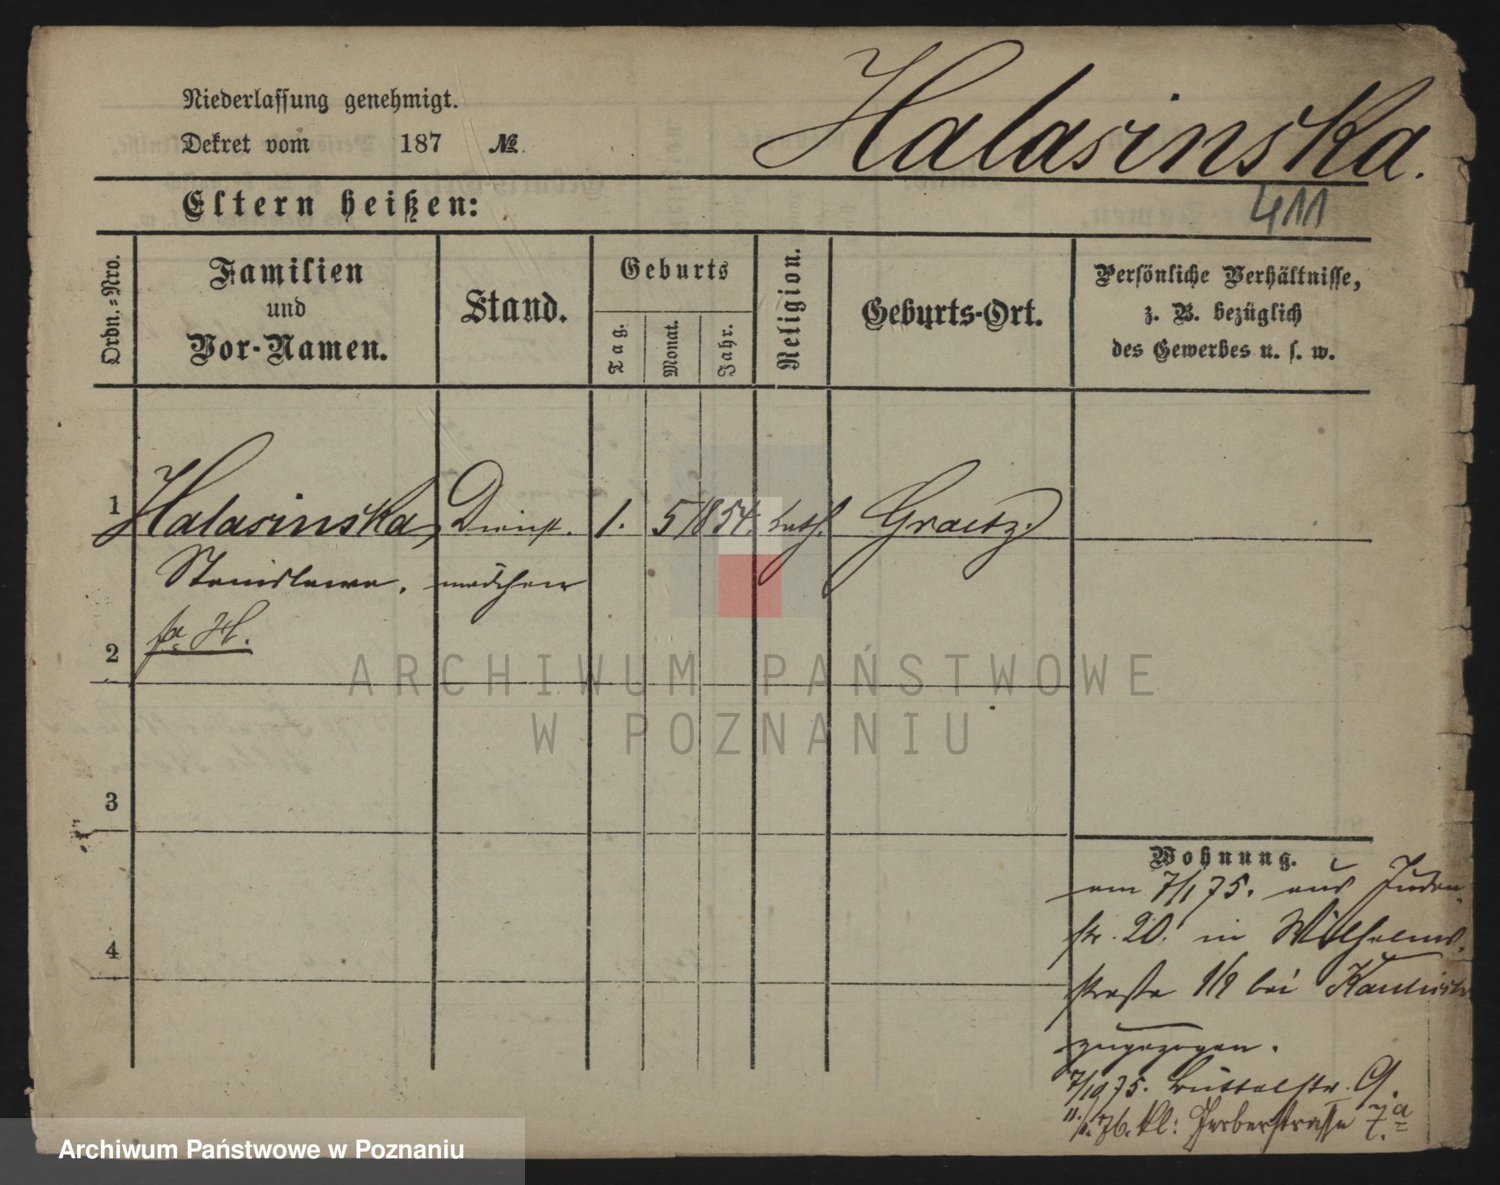 Niederlassung genehmigt.
Dekret vom 187 №
Halasinska.
411
Eltern heißen:
Ordn.-Nro.
Familien
und
Vor-Namen.
Stand.
Geburts
Tag.
Monat.
Jahr.
Religion.
Geburts-Ort.
Persönliche Verhältnisse,
z. B. bezüglich
des Gewerbes u. s. w.
1 Halasinska, Dienst. 1. 5 1854. kath. Graetz.
Stanislawa. mädchen
2
3
4
ARCHIWUM PAŃSTWOWE
W POZNANIU
Wohnung.
am 7/1 75. aus Juden
str. 20. in Wilhelms
straße bei
zugezogen.
7/10 75. Büttelstr. 9.
kl: Gerberstrasse 7.a
Archiwum Państwowe w Poznaniu